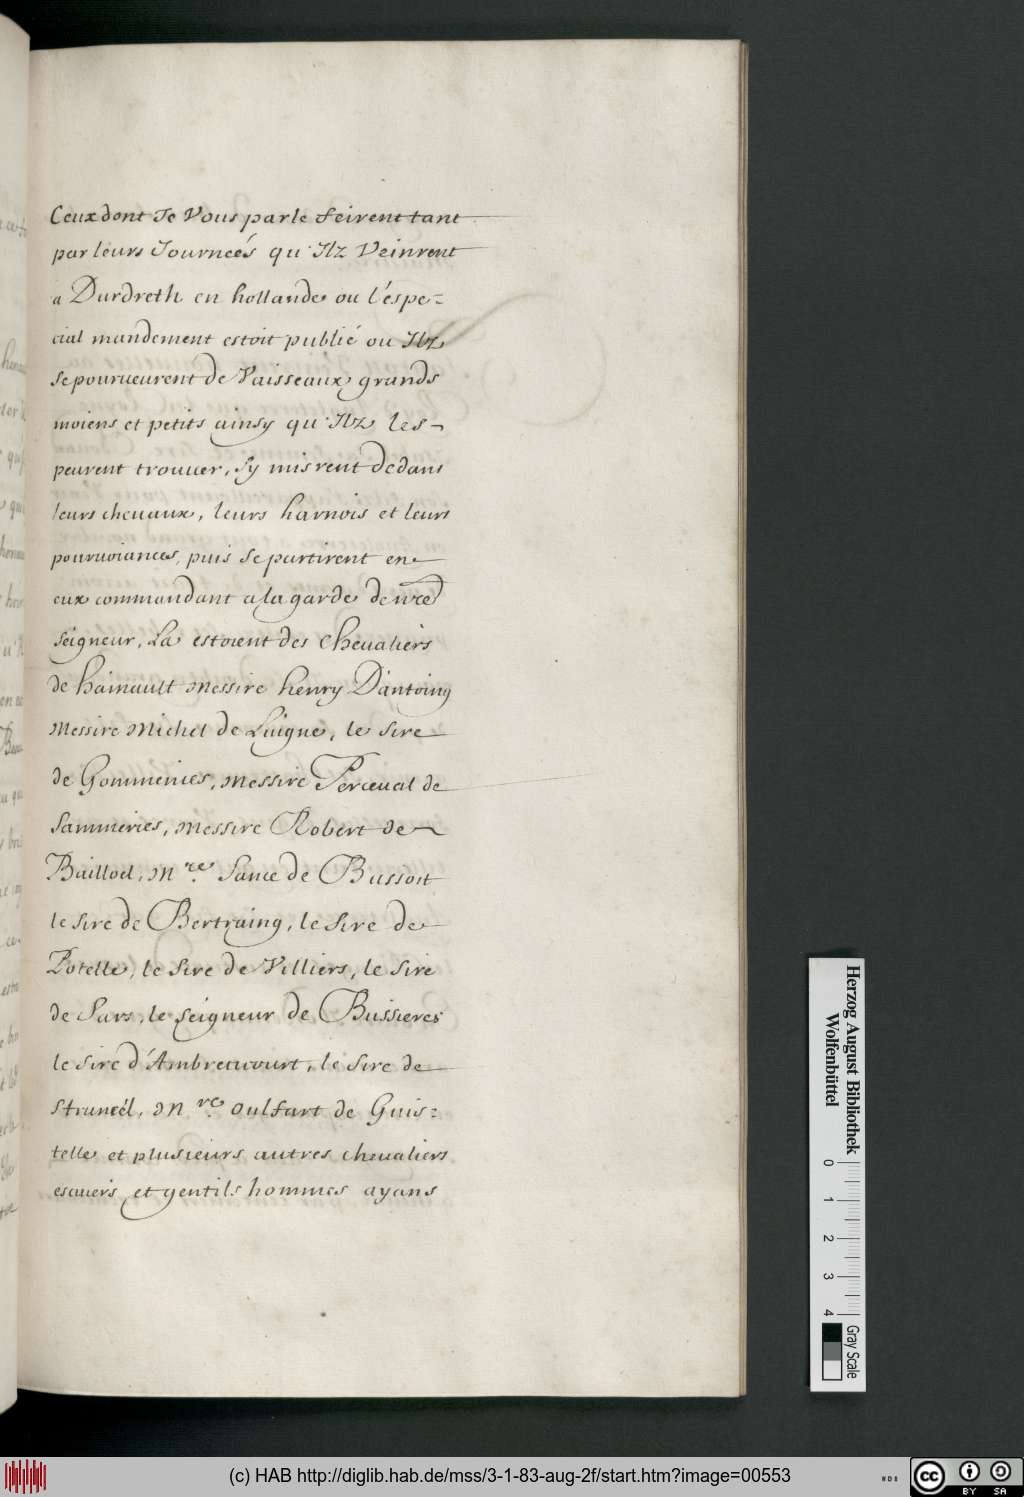 Ceux dont Je Vous parle feirent tant
par leurs Journeés qu'Ilz Veinrent
a Durdreth en hollande ou l'éspe=
cial mandement estoit publié ou Ilz
se pourueurent de Vaisseaux grands
moiens et petits ainsy qu'Ilz les
peurent trouuer, sy misrent dedans
leurs cheuaux, leurs harnois et leurs
pouruoiances, puis se partirent en
eux commandant a la garde de nr̃e
seigneur, La estoient des Cheualiers
de hainault Messire henry D'antoing
Messire Michel de Luigne, le sire
de Gommenies, Messire Perceual de
Sammeries, Messire Robert de
Bailloel, M.re Sance de Bussoit
le sire de Bertraing, le sire de
Potelle, le sire de Villiers, le sire
de Sars, le seigneur de Bussieres
le sire d'Ambretuourt, le sire de
Strumél, M.re oulfart de Guis=
telle et plusieurs autres cheualiers
escuiers et gentils hommes ayans
Herzog August Bibliothek
Wolfenbüttel
0 1 2 3 4
Gray Scale
(c) HAB http://diglib.hab.de/mss/3-1-83-aug-2f/start.htm?image=00553
WDB
cc BY SA